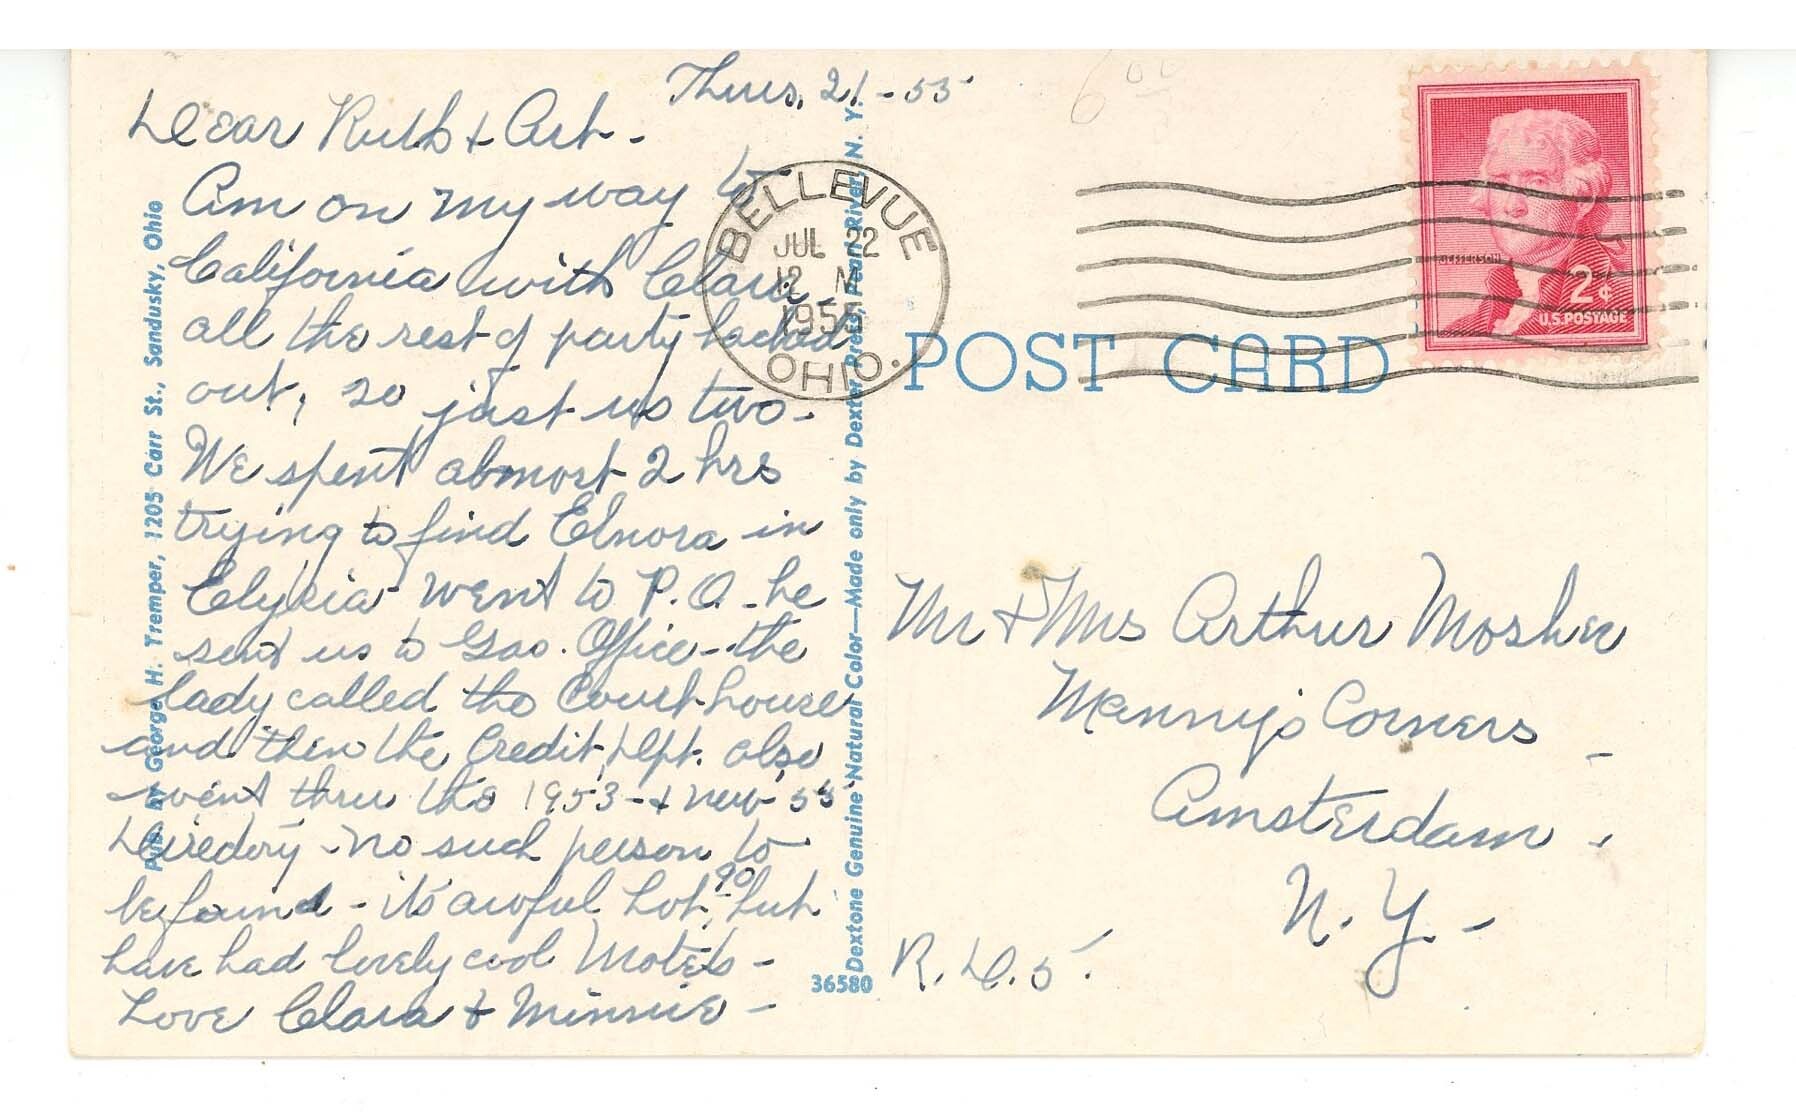 Thurs. 21 - 55
Dear Ruth & Art -
Am on my way to
California with Clara -
all the rest of party backed
out, so just us two -
We spent almost 2 hrs
trying to find Elnora in
Elyria - went to P.O. - he
sent us to Gas. Office - the
lady called the Court house
and then the Credit Dept. also
went thru the 1953 - & new '55
Directory - no such person to
be found - it's awful hot, 90 but
have had lovely cool Motels -
Love Clara & Minnie -
Pub. by George H. Tremper, 1205 Carr St., Sandusky, Ohio
Dextone Genuine Natural Color—Made only by Dexter Press, Pearl River, N. Y.
36580
BELLEVUE
JUL 22
12 M
1955
OHIO.
POST CARD
6 00
JEFFERSON
2¢
U.S. POSTAGE
Mr & Mrs Arthur Mosher
Manny's Corners -
Amsterdam,
N. Y. -
R. D. 5.